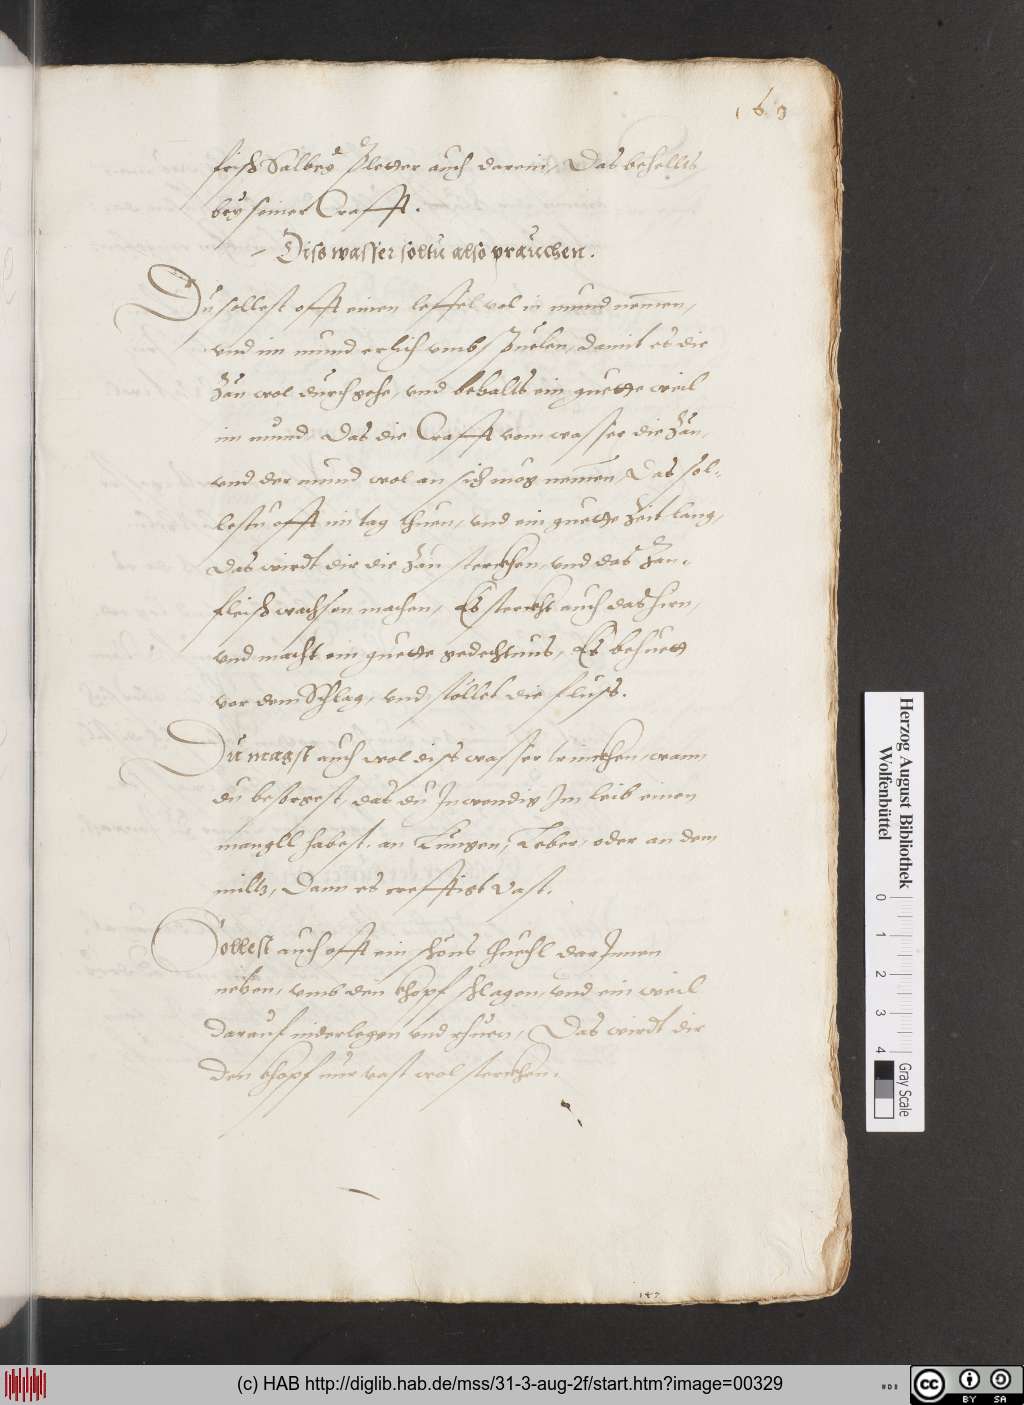 160
frisch Salbey Pletter auch darein, Das behellts
bey seiner Crafft.
Dises wasser soltu also prauchen.
Du sollest offt einen leffel vol in mund nemen,
vnd im mund erlich vmb spuelen, damit es die
Zän wol durchgehe, vnd behalts ein guette weil
im mund, Das die Crafft vom wasser die Zän,
vnd der mund wol an sich mög nemen, Das sol-
lestu offt im tag thuen, vnd ein guette Zeit lang,
Das wirdt dir die Zän sterckhen, vnd das Zan-
fleisch wachsen machen, Es sterckht auch das hirn,
vnd macht ein guette gedechtnus, Es behuett
vor dem Schlag, vnd stöllet die fluss.
Du magst auch wol diss wasser trinckhen, wann
du besorgest, das du Inwendig Im leib einen
mangll habest, an Lungen, Leber, oder an dem
miltz, Dann es crefftigt vast.
Sollest auch offt ein schöns thuechl darInnen
netzen, vmb den khopf schlagen, vnd ein weil
darauf niderlegen vnd rhuen, Das wirdt dir
den khopf nur vast wol sterckhen.
187
Herzog August Bibliothek
Wolfenbüttel
0 1 2 3 4
Gray Scale
(c) HAB http://diglib.hab.de/mss/31-3-aug-2f/start.htm?image=00329
cc BY SA